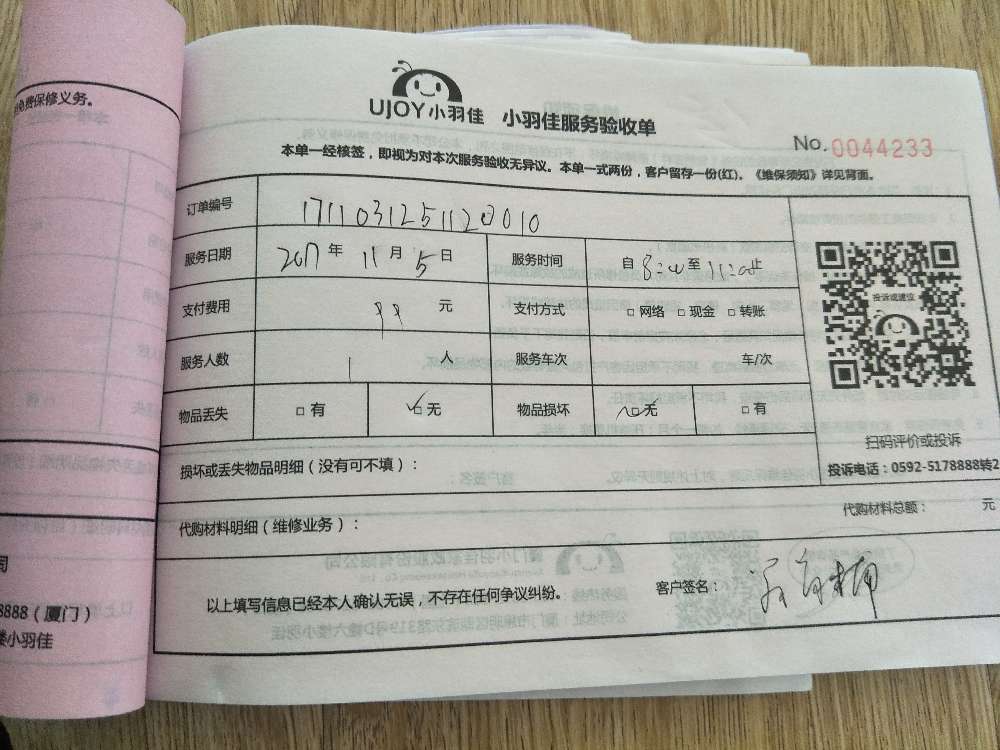 免费保修义务。
UJOY小羽佳 小羽佳服务验收单
No.0044233
本单一经核签，即视为对本次服务验收无异议。本单一式两份，客户留存一份(红)。《维保须知》详见背面。
订单编号 1711031251120010
服务日期 2017年11月5日 服务时间 自8:00至11:00止
支付费用 99元 支付方式 □网络 □现金 □转账
服务人数 1人 服务车次 车/次
投诉或建议
物品丢失 □有 ☑无 物品损坏 ☑无 □有
扫码评价或投诉
损坏或丢失物品明细（没有可不填）：
投诉电话：0592-5178888转2
代购材料明细（维修业务）：
代购材料总额： 元
以上填写信息已经本人确认无误，不存在任何争议纠纷。
客户签名：
司
8888（厦门）
楼小羽佳